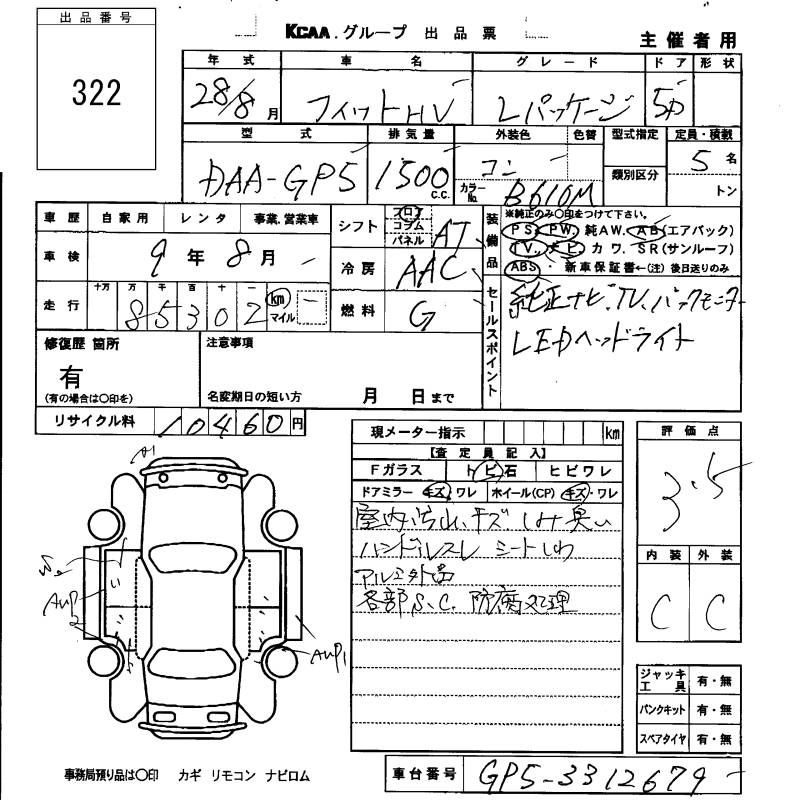 出品番号
322
KCAA.グループ 出品票
主催者用
年式 車名 グレード ドア 形状
28/8月 フィットHV Lパッケージ 5D
型式 排気量 外装色 色替 型式指定 定員・積載
DAA-GP5 1500 C.C. コン カラーNo. B610M 類別区分 5名 トン
車歴 自家用 レンタ 事業,営業車
車検 9年8月
走行 十万 万 千 百 十 一
85302 km マイル
シフト フロア コラム パネル AT
冷房 AAC
燃料 G
装備品
※純正のみ○印をつけて下さい。
PS. PW. 純AW. AB(エアバック)
TV. ナビ カワ. SR(サンルーフ)
ABS 新車保証書←(注)後日送りのみ
セールスポイント
純正ナビ.TV.バックモニター
LEDヘッドライト
修復歴 箇所
有
(有の場合は○印を)
注意事項
名変期日の短い方 月 日まで
リサイクル料 10460円
現メーター指示 km
【査定員記入】
Fガラス トビ石 ヒビワレ
ドアミラー キズ.ワレ ホイール(CP) キズ・ワレ
室内汚れ キズ しみ 臭い
ハンドルスレ シートしわ
アルミ外品
各部S.C. 防腐処理
評価点
3.5
内装 外装
C C
A1
AUP2
AUP1
ジャッキ工具 有・無
パンクキット 有・無
スペアタイヤ 有・無
事務局預り品は○印 カギ リモコン ナビロム
車台番号 GP5-3312679